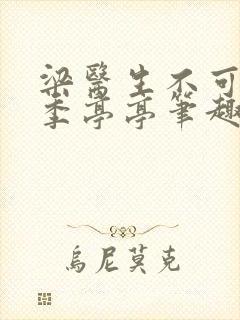 梁醫生不可
季亭亭筆趣
烏尼莫克